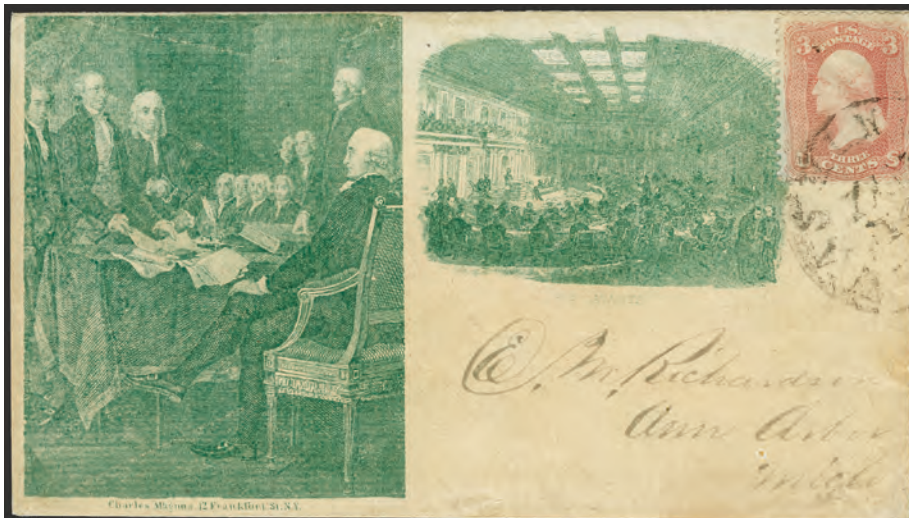 3 U.S. 3
POSTAGE
THREE
CENTS
E. M. Richardson
Ann Arbor
Mich
Charles Magnus, 12 Frankfort St. N.Y.